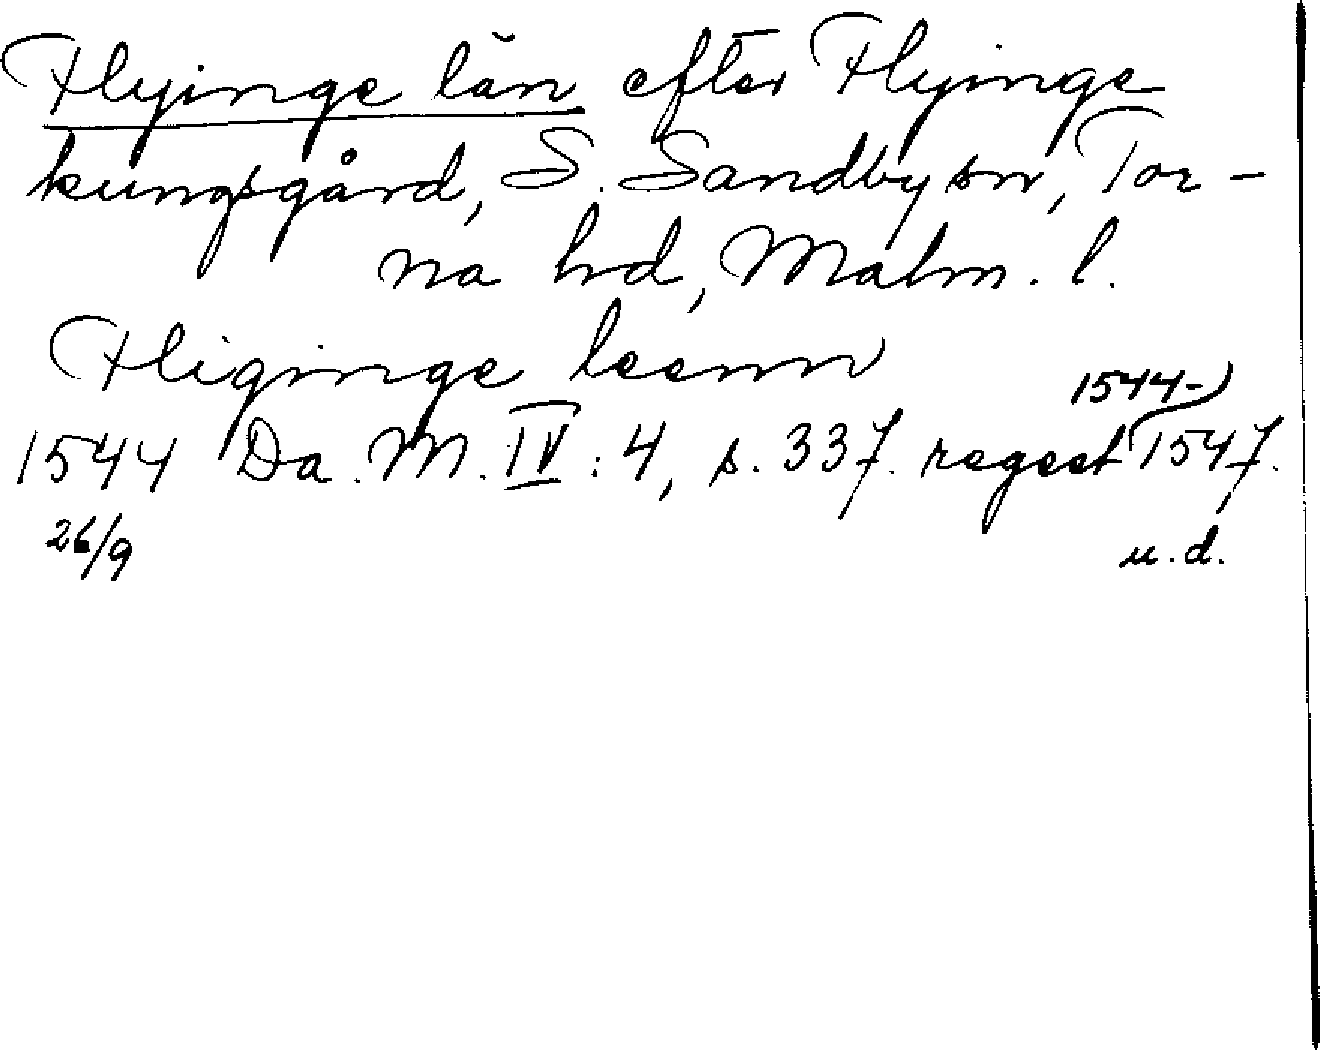 Flyinge län efter Flyinge
kungsgård, S. Sandby sn, Tor-
na hd, Malm. l.
Fliginge leenn
1544 Da. M. IV : 4, s. 337. regest 1544-1547.
26/9 u. d.